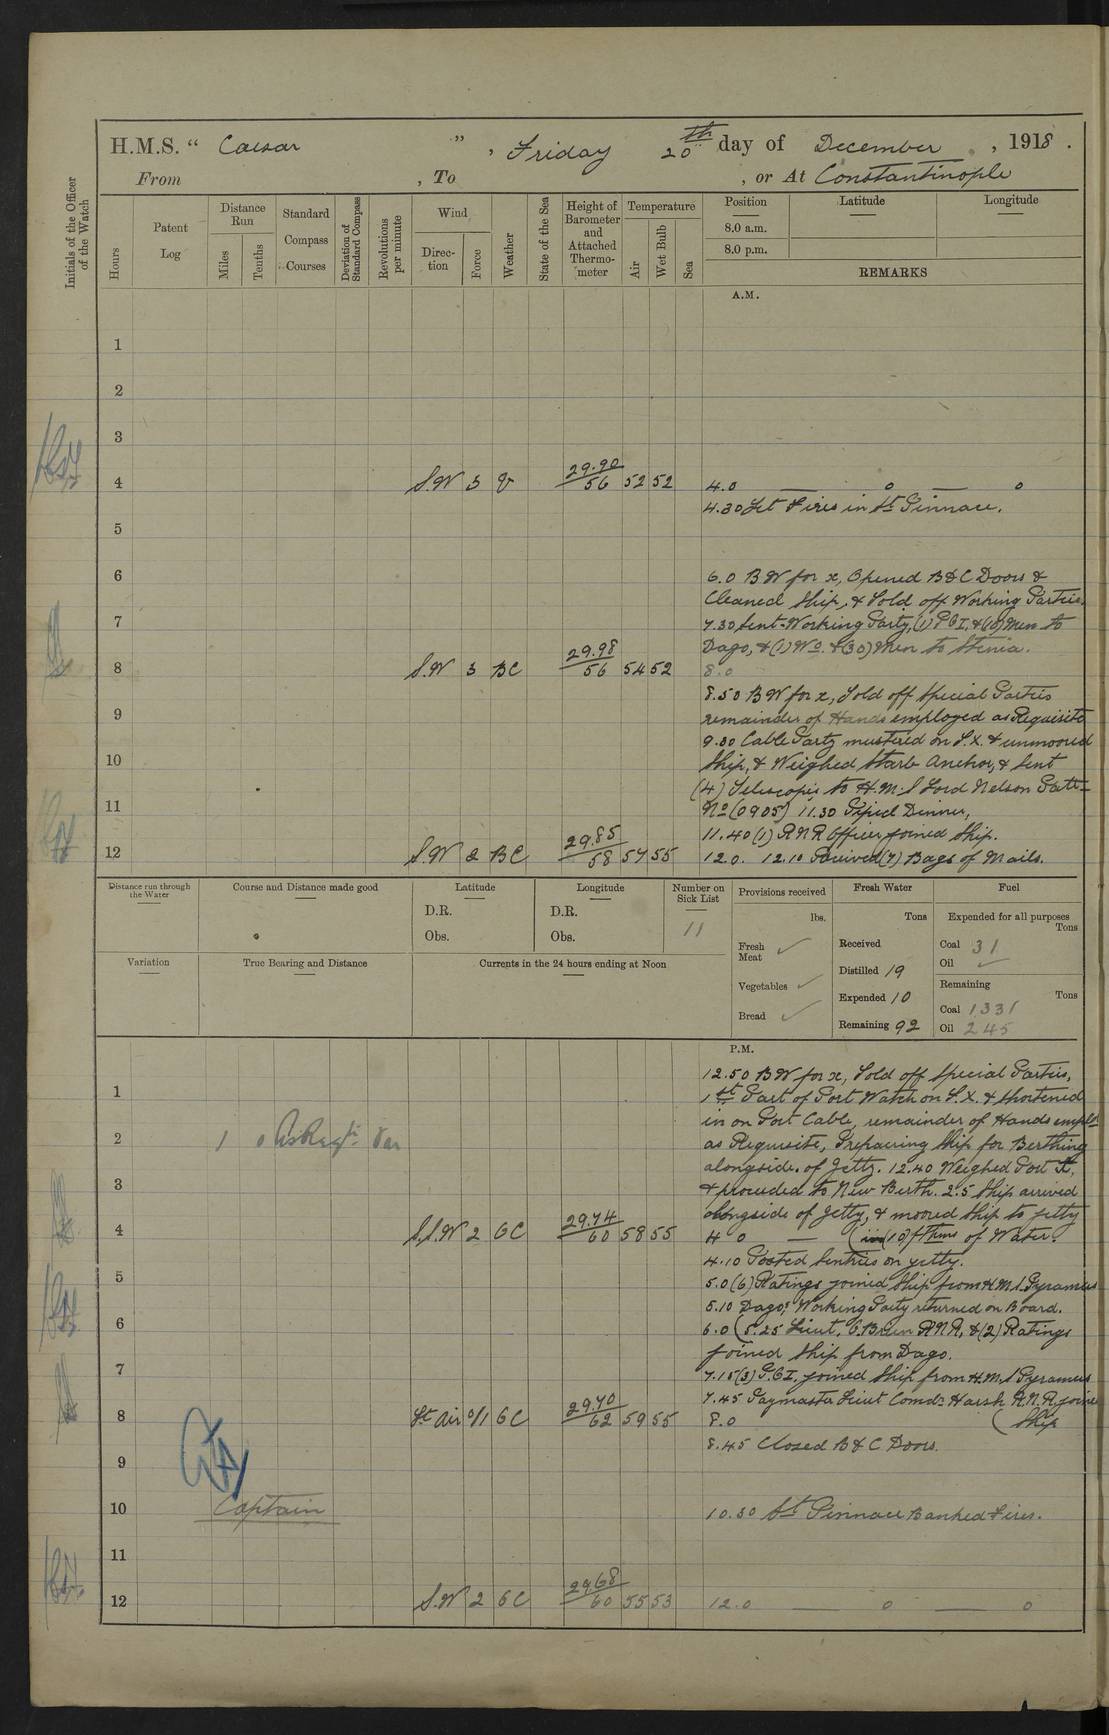 H.M.S. “ Caesar ”, Friday 20th day of December, 1918.
From , To , or At Constantinople
Initials of the Officer of the Watch
Hours
Patent Log
Distance Run
Miles
Tenths
Standard Compass Courses
Deviation of Standard Compass
Revolutions per minute
Wind
Direction
Force
Weather
State of the Sea
Height of Barometer and Attached Thermometer
Temperature
Air
Wet Bulb
Sea
Position
8.0 a.m.
8.0 p.m.
Latitude
Longitude
REMARKS
A.M.
1
2
3
4 S.W 3 29.90 56 52 52 4.0 — o — o
4.30 Let Fires in St Pinnace.
5
6 6.0 B W for x, Opened B & C Doors &
Cleaned Ship, & Told off Working Parties.
7 7.30 Sent Working Party, (1) P O I. & (10) Men to
Dago, & (1) W.O. & (30) Men to Stenia.
8 S.W 3 BC 29.98 56 54 52 8.0
8.50 B W for x, Told off Special Parties
9 remainder of Hands employed as Requisite
9.30 Cable Party mustered on F.X. & unmoored
10 Ship, & Weighed Starb Anchor, & Sent
(4) Telescopes to H.M.S Lord Nelson Patt=
11 No (0905) 11.30 Piped Dinner,
11.40 (1) R N R Officer joined Ship.
12 S.W 2 BC 29.85 58 57 55 12.0. 12.10 Received (7) Bags of Mails.
Distance run through the Water
Course and Distance made good
Latitude
D.R.
Obs.
Longitude
D.R.
Obs.
Number on Sick List
11
Provisions received
lbs.
Fresh Meat ✓
Vegetables ✓
Bread ✓
Fresh Water
Tons
Received
Distilled 19
Expended 10
Remaining 92
Fuel
Expended for all purposes
Tons
Coal 31
Oil ✓
Remaining
Tons
Coal 1331
Oil 245
Variation
True Bearing and Distance
Currents in the 24 hours ending at Noon
P.M.
12.50 B W for x, Told off Special Parties,
1 1st Part of Port Watch on F.X. & Shortened
in on Port Cable, remainder of Hands empld
2 1 0 as Requisite, Preparing Ship for Berthing
alongside of Jetty. 12.40 Weighed Port A,
3 & proceeded to New Berth. 2.5 Ship arrived
alongside of Jetty, & moored Ship to jetty
4 S.S.W 2 BC 29.74 60 58 55 4 0 — (in (10) fthms of Water.
4.10 Posted Sentries on jetty.
5 5.0 (6) Ratings joined Ship from H.M.S. Pyramus
5.10 Dago; Working Party returned on Board.
6 6.0 (5.25 Lieut. RNR, & (2) Ratings
joined Ship from Dago.
7 7.15 (3) P.O I. joined Ship from H.M.S Pyramus
7.45 Paymaster Lieut Comdr R.N.R. joined
8 Lt Air 0/1 BC 29.70 62 59 55 8.0 (Ship
8.45 Closed B & C Doors.
9
10 Captain 10.30 St Pinnace Banked Fires.
11
12 S.W 2 BC 29.68 60 55 53 12.0 — o — o